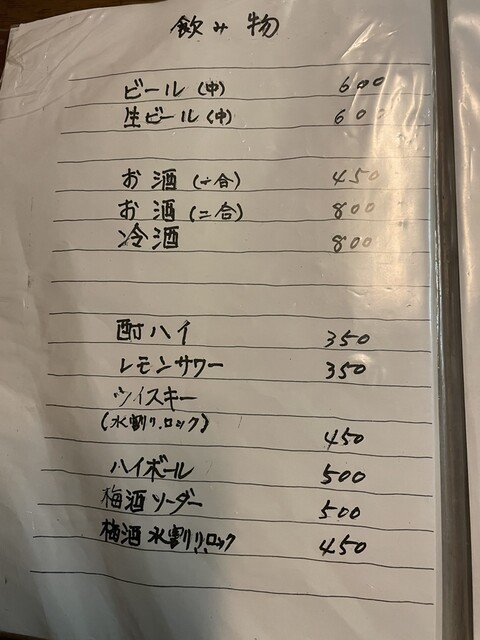 飲み物
ビール (中) 600
生ビール (中) 600
お酒 (一合) 450
お酒 (二合) 800
冷酒 800
酎ハイ 350
レモンサワー 350
ウイスキー
(水割り.ロック) 450
ハイボール 500
梅酒ソーダー 500
梅酒水割り.ロック 450